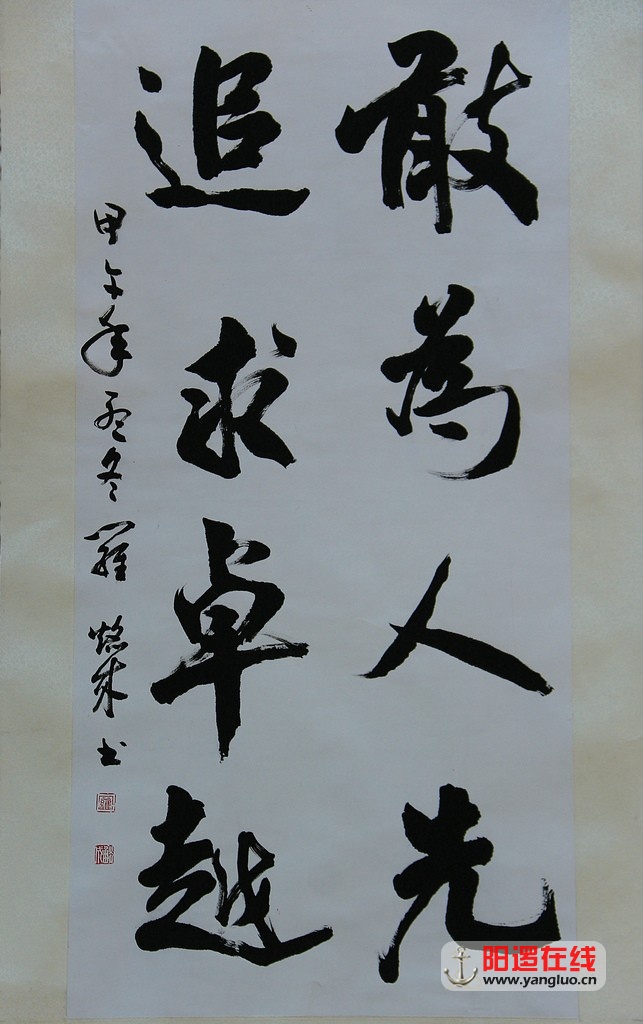 敢為人先
追求卓越
甲午年孟冬羅成書
阳逻在线
www.yangluo.cn